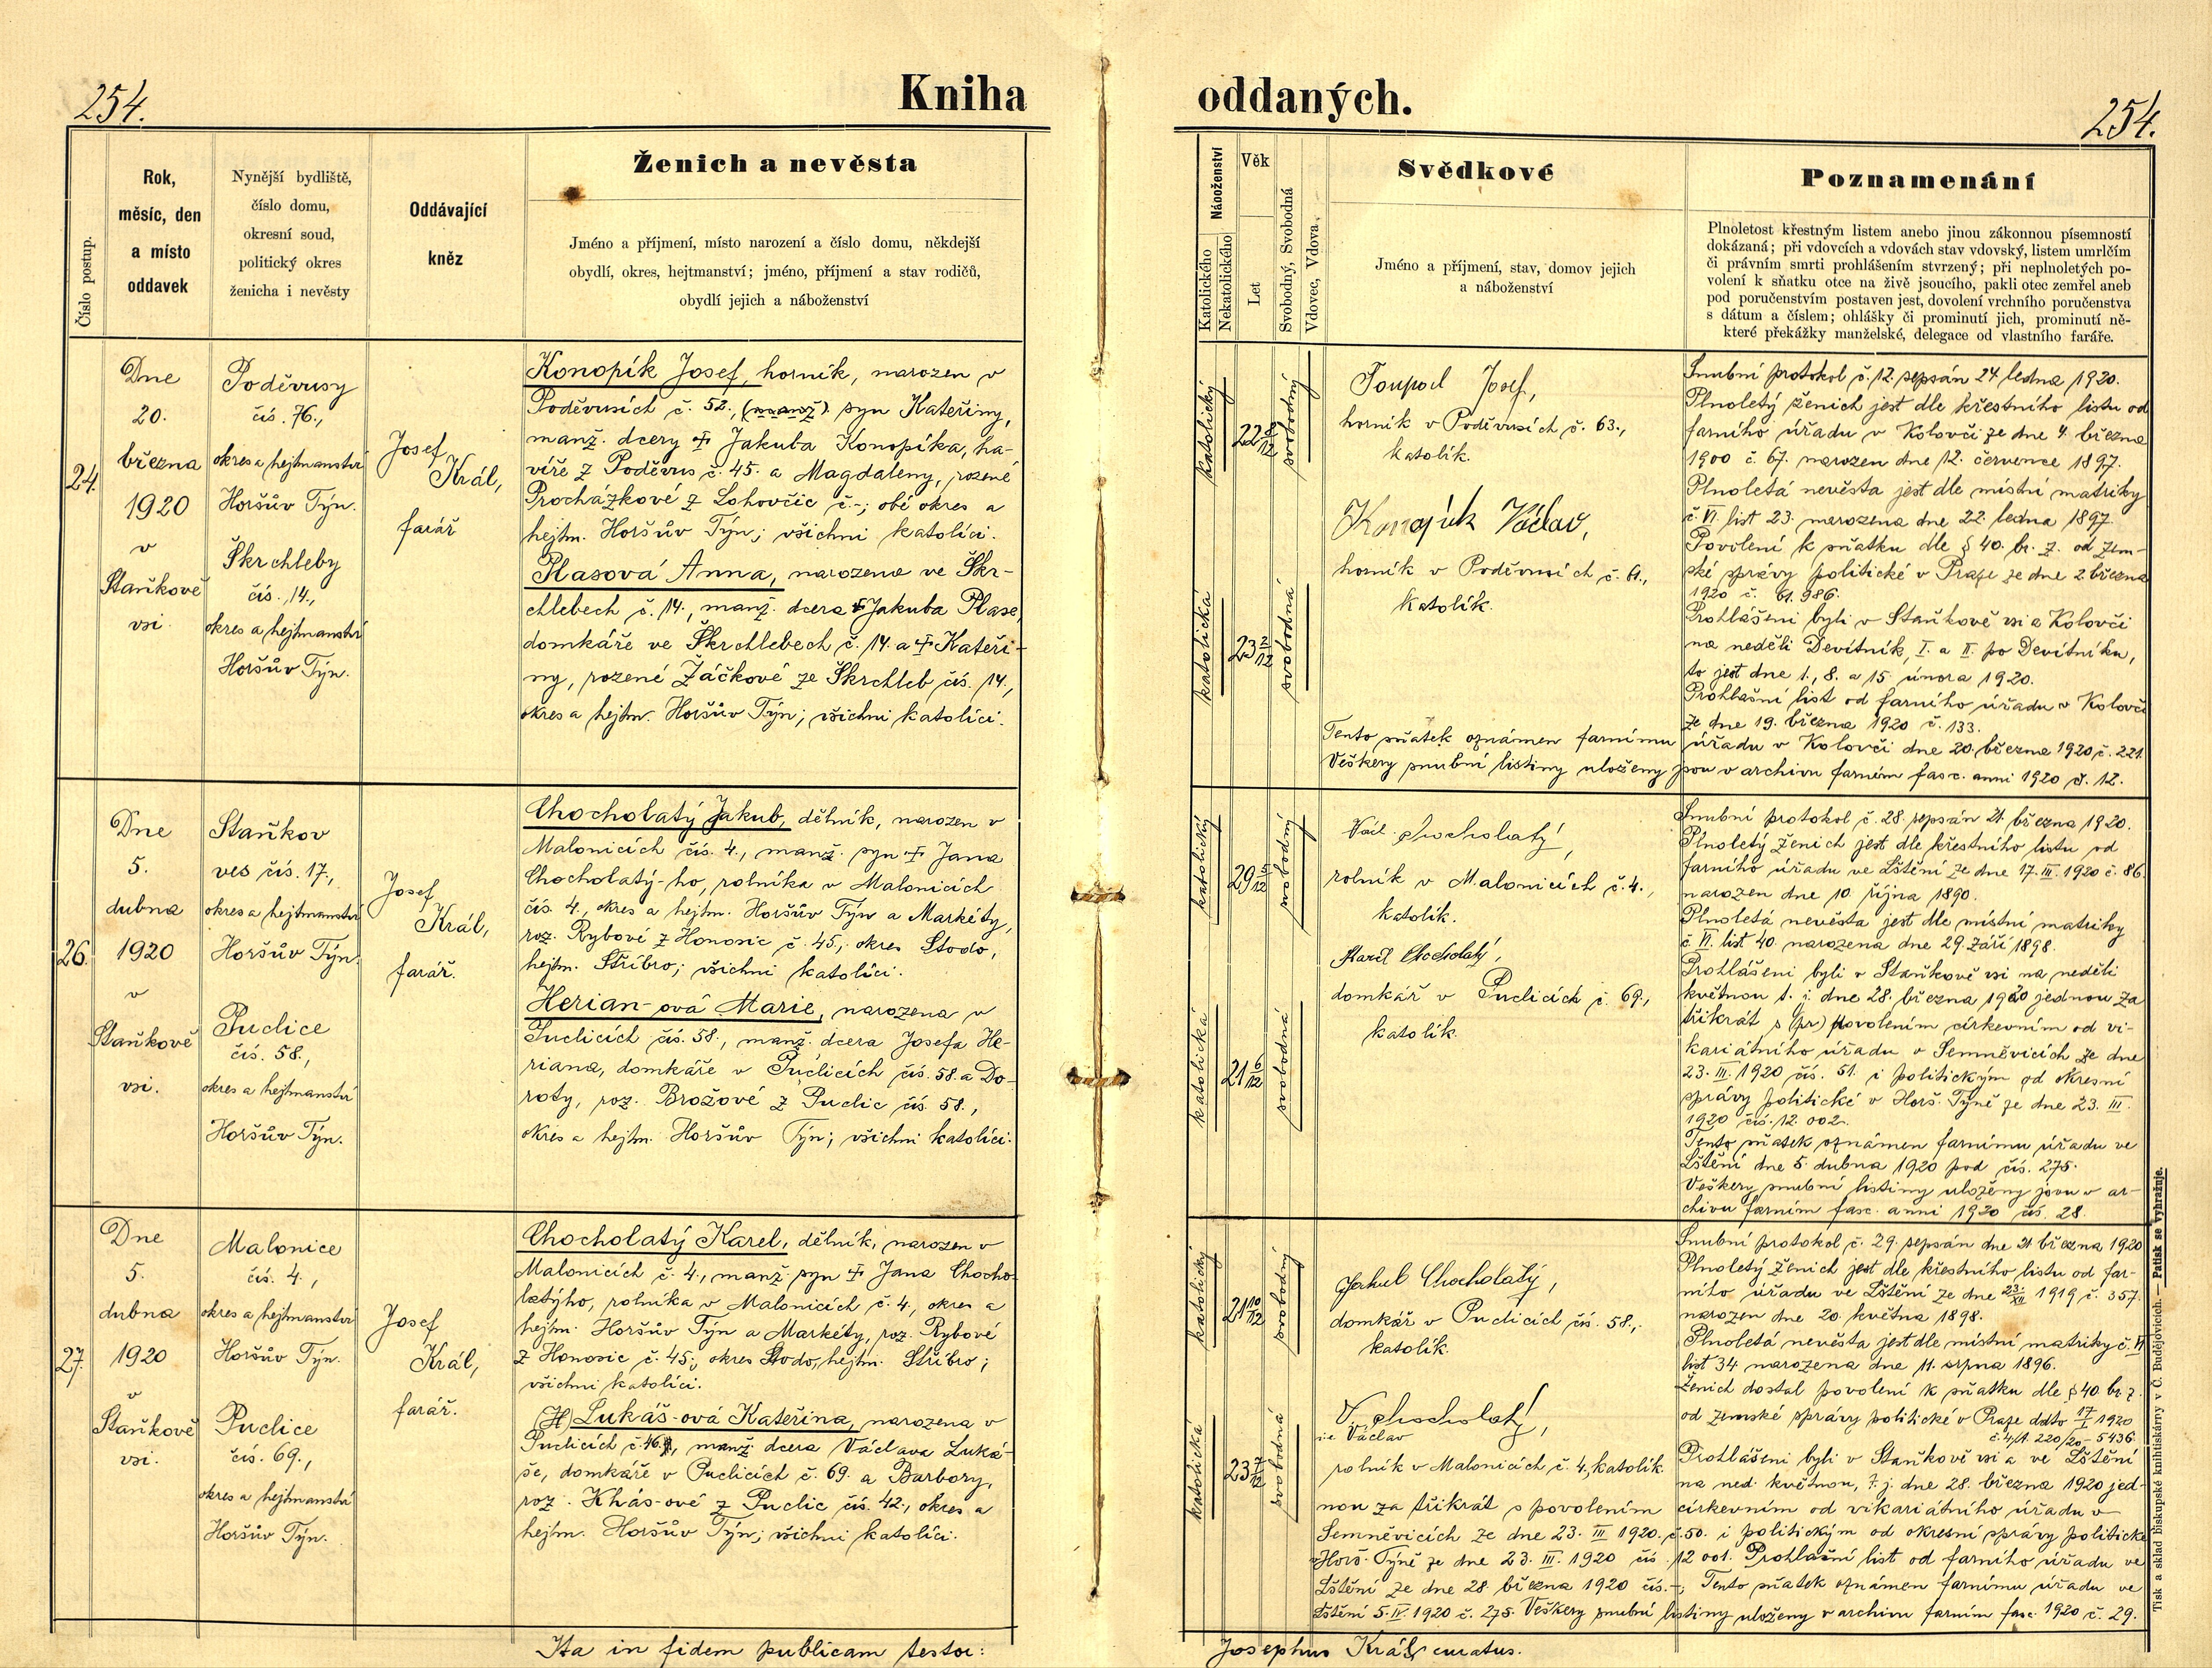 254.
Kniha
oddaných.
254.
Číslo postup.
Rok,
měsíc, den
a místo
oddavek
Nynější bydliště,
číslo domu,
okresní soud,
politický okres
ženicha i nevěsty
Oddávající
kněz
Ženich a nevěsta
Jméno a příjmení, místo narození a číslo domu, někdejší
obydlí, okres, hejtmanství; jméno, příjmení a stav rodičů,
obydlí jejich a náboženství
Náboženství
Katolického
Nekatolického
Věk
Let
Svobodný, Svobodná
Vdovec, Vdova.
Svědkové
Jméno a příjmení, stav, domov jejich
a náboženství
Poznamenání
Plnoletost křestným listem anebo jinou zákonnou písemností
dokázaná; při vdovcích a vdovách stav vdovský, listem umrlčím
či právním smrti prohlášením stvrzený; při neplnoletých po-
volení k sňatku otce na živě jsoucího, pakli otec zemřel aneb
pod poručenstvím postaven jest, dovolení vrchního poručenstva
s dátum a číslem; ohlášky či prominutí jich, prominutí ně-
které překážky manželské, delegace od vlastního faráře.
24.
Dne
20.
března
1920
v
Staňkově
vsi.
Poděvusy
čís. 76.,
okres a hejtmanství
Horšův Týn.
Škrchleby
čís. 14.,
okres a hejtmanství
Horšův Týn.
Josef
Král,
farář
Konopík Josef, horník, narozen v
Poděvusích č. 52., (manž) syn Kateřiny,
manž. dcery † Jakuba Konopíka, ha-
víře z Poděvus č. 45. a Magdaleny, rozené
Procházkové z Lohovčic č.-; obé okres a
hejtm. Horšův Týn; všichni katolíci.
Plasová Anna, narozena ve Škr-
chlebech č. 14., manž. dcera † Jakuba Plase,
domkáře ve Škrchlebech č. 14. a † Kateři-
ny, rozené Žáčkové ze Škrchleb čís. 14.,
okres a hejtm. Horšův Týn; všichni katolíci.
katolický
22 8/12
svobodný
katolická
23 2/12
svobodná
Toupal Josef,
horník v Poděvusích č. 63.,
katolík.
Konopík Václav,
horník v Poděvusích č. 61.,
katolík.
Snubní protokol č. 12. sepsán 24. ledna 1920.
Plnoletý ženich jest dle křestního listu od
farního úřadu v Kolovči ze dne 4. března
1900 č. 67. narozen dne 12. července 1897.
Plnoletá nevěsta jest dle místní matriky
č. VI. list 23. narozena dne 22. ledna 1897.
Povolení k sňatku dle § 40. br. z. od Zem-
ské správy politické v Praze ze dne 2. března
1920 č. 61.986.
Prohlášeni byli v Staňkově vsi a Kolovči
na neděli Devítník, I. a II. po Devítníku,
to jest dne 1., 8. a 15. února 1920.
Prohlašní list od farního úřadu v Kolovči
ze dne 19. března 1920 č. 133.
Tento sňatek oznámen farnímu úřadu v Kolovči dne 20. března 1920 č. 221.
Veškery snubní listiny uloženy jsou v archivu farním fasc. anni 1920 č. 12.
26.
Dne
5.
dubna
1920
v
Staňkově
vsi.
Staňkov
ves čís. 17.,
okres a hejtmanství
Horšův Týn.
Puclice
čís. 58.,
okres a hejtmanství
Horšův Týn.
Josef
Král,
farář.
Chocholatý Jakub, dělník, narozen v
Malonicích čís. 4., manž. syn † Jana
Chocholatý-ho, rolníka v Malonicích
čís. 4., okres a hejtm. Horšův Týn a Markéty,
roz. Rybové z Honosic č. 45., okres Stodo,
hejtm. Stříbro; všichni katolíci.
Herian-ová Marie, narozena v
Puclicích čís. 58., manž. dcera Josefa He-
riana, domkáře v Puclicích čís. 58. a Do-
roty, roz. Brožové z Puclic čís. 58.,
okres a hejtm. Horšův Týn; všichni katolíci.
katolický
29 5/12
svobodný
katolická
21 6/12
svobodná
Václ. Chocholatý,
rolník v Malonicích č. 4.,
katolík.
Karel Chocholatý,
domkář v Puclicích č. 69.,
katolík.
Snubní protokol č. 28. sepsán 21. března 1920.
Plnoletý ženich jest dle křestního listu od
farního úřadu ve Lštění ze dne 17. III. 1920 č. 86.
narozen dne 10. října 1890.
Plnoletá nevěsta jest dle místní matriky
č. VI. list 40. narozena dne 29. září 1898.
Prohlášeni byli v Staňkově vsi na neděli
květnou t. j. dne 28. března 1920 jednou za
třikrát s (pr) povolením církevním od vi-
kariátního úřadu v Semněvicích ze dne
23. III. 1920 čís. 51. i politickým od okresní
správy politické v Horš. Týně ze dne 23. III.
1920 čís. 12.002.
Tento sňatek oznámen farnímu úřadu ve
Lštění dne 5. dubna 1920 pod čís. 275.
Veškery snubní listiny uloženy jsou v ar-
chivu farním fasc. anni 1920 čís. 28.
27.
Dne
5.
dubna
1920
v
Staňkově
vsi.
Malonice
čís. 4.,
okres a hejtmanství
Horšův Týn.
Puclice
čís. 69.,
okres a hejtmanství
Horšův Týn.
Josef
Král,
farář.
Chocholatý Karel, dělník, narozen v
Malonicích č. 4., manž. syn † Jana Chocho-
latýho, rolníka v Malonicích č. 4., okres a
hejtm. Horšův Týn a Markéty, roz. Rybové
z Honosic č. 45., okres Stodo, hejtm. Stříbro;
všichni katolíci.
(H) Lukáš-ová Kateřina, narozena v
Puclicích č. 46., manž. dcera Václava Luká-
še, domkáře v Puclicích č. 69. a Barbory,
roz. Khás-ové z Puclic čís. 42., okres a
hejtm. Horšův Týn; všichni katolíci.
katolický
21 10/12
svobodný
katolická
23 7/12
svobodná
Jakub Chocholatý,
domkář v Puclicích čís. 58.,
katolík.
V. Chocholatý,
i.e. Václav
rolník v Malonicích č. 4., katolík.
Snubní protokol č. 29. sepsán dne 21. března 1920
Plnoletý ženich jest dle křestního listu od far-
ního úřadu ve Lštění ze dne 23./XII 1919 č. 357.
narozen dne 20. května 1898.
Plnoletá nevěsta jest dle místní matriky č. VI
list 34 narozena dne 11. srpna 1896.
Ženich dostal povolení k sňatku dle § 40. br. z.
od zemské správy politické v Praze ddto 17/I 1920
č. 4/A. 220/20 - 5436.
Prohlášeni byli v Staňkově vsi a ve Lštění
na ned. květnou, t. j. dne 28. března 1920 jed-
nou za třikrát s povolením církevním od vikariátního úřadu v
Semněvicích ze dne 23. III. 1920. č. 50. i politickým od okresní správy politické
v Horš. Týně ze dne 23. III. 1920 čís. 12 001. Prohlašní list od farního úřadu ve
Lštění ze dne 28. března 1920 čís. -; Tento sňatek oznámen farnímu úřadu ve
Lštění 5. IV. 1920 č. 275. Veškery snubní listiny uloženy v archivu farním fasc. 1920 č. 29.
Ita in fidem publicam testor:
Josephus Král, curatus.
Tisk a sklad Biskupské knihtiskárny v Č. Budějovicích. — Patisk se vyhražuje.